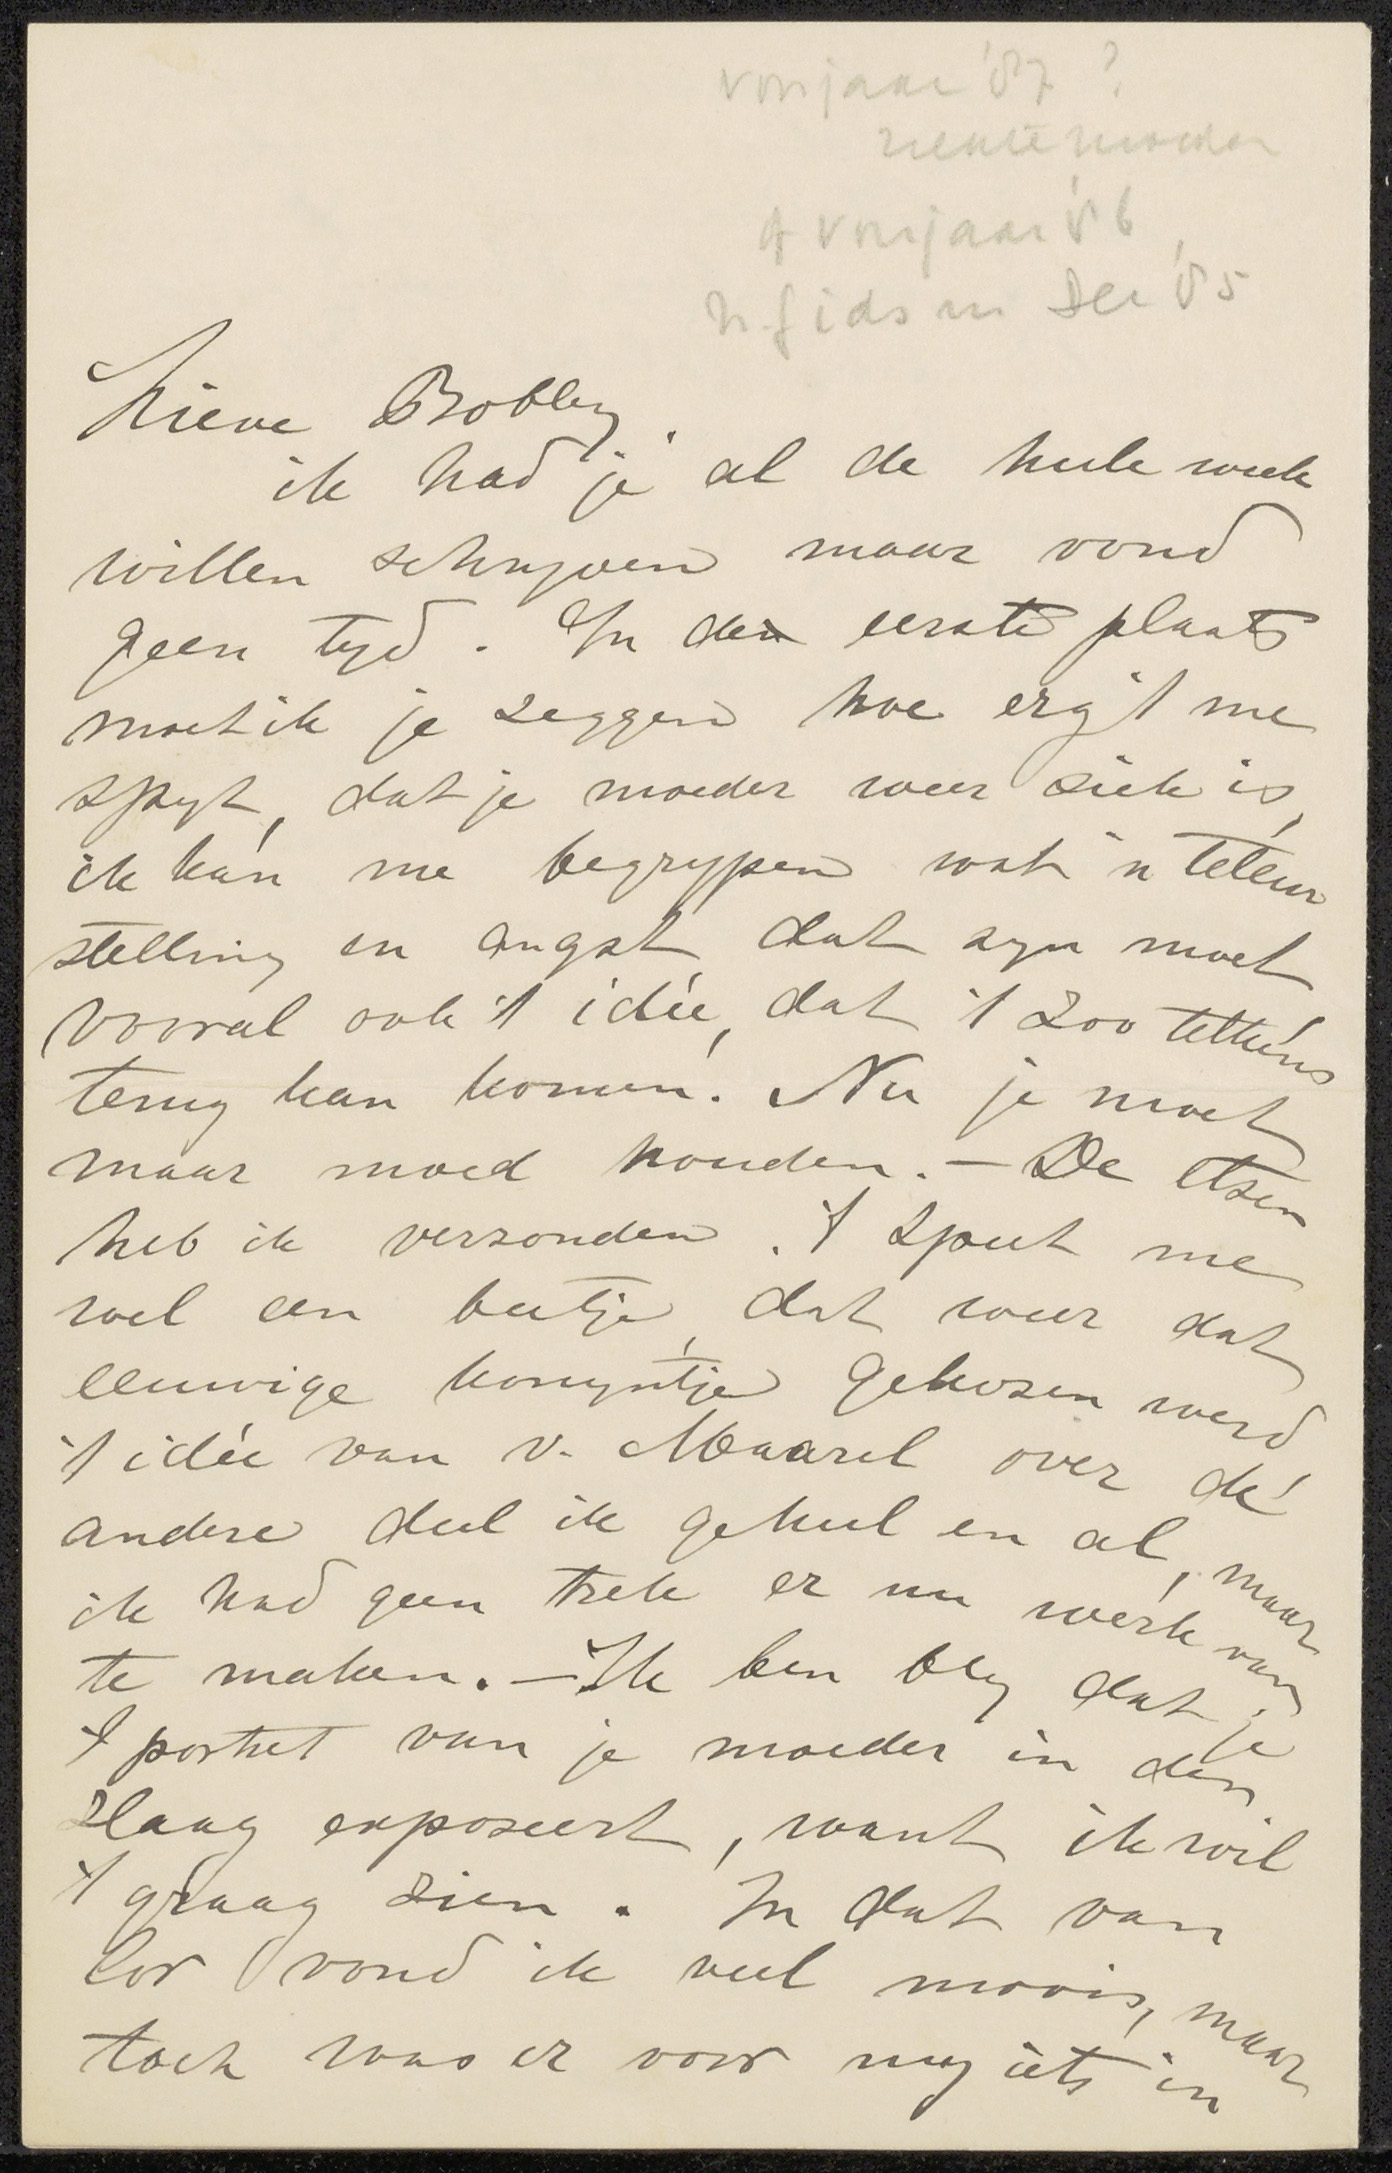 voorjaar '87?
ziekte moeder
of voorjaar '86,
N. Gids in Dec '85
Lieve Bobbey.
ik had je al de heele week
willen schryven maar vond
geen tyd. In den eerste plaats
moet ik je zeggen hoe erg 't me
spyt, dat je moeder weer ziek is,
ik kan me begrypen wat 'n teleur
stelling en angst dat zyn moet
vooral ook 't idée, dat 't zoo telkens
terug kan komen. Nu je moet
maar moed houden. — De etsen
heb ik verzonden. 't Speet me
wel een beetje, dat weer dat
eeuwige konyntje gekozen werd
't idée van v. d Maarel over de
andere deel ik geheel en al, maar
ik had geen trek er nu werk van
te maken. — Ik ben bly dat je
't portret van je moeder in den
Haag exposeert, want ik wil
't graag zien. In dat van
Cor vond ik veel moois, maar
toch was er voor my iets in